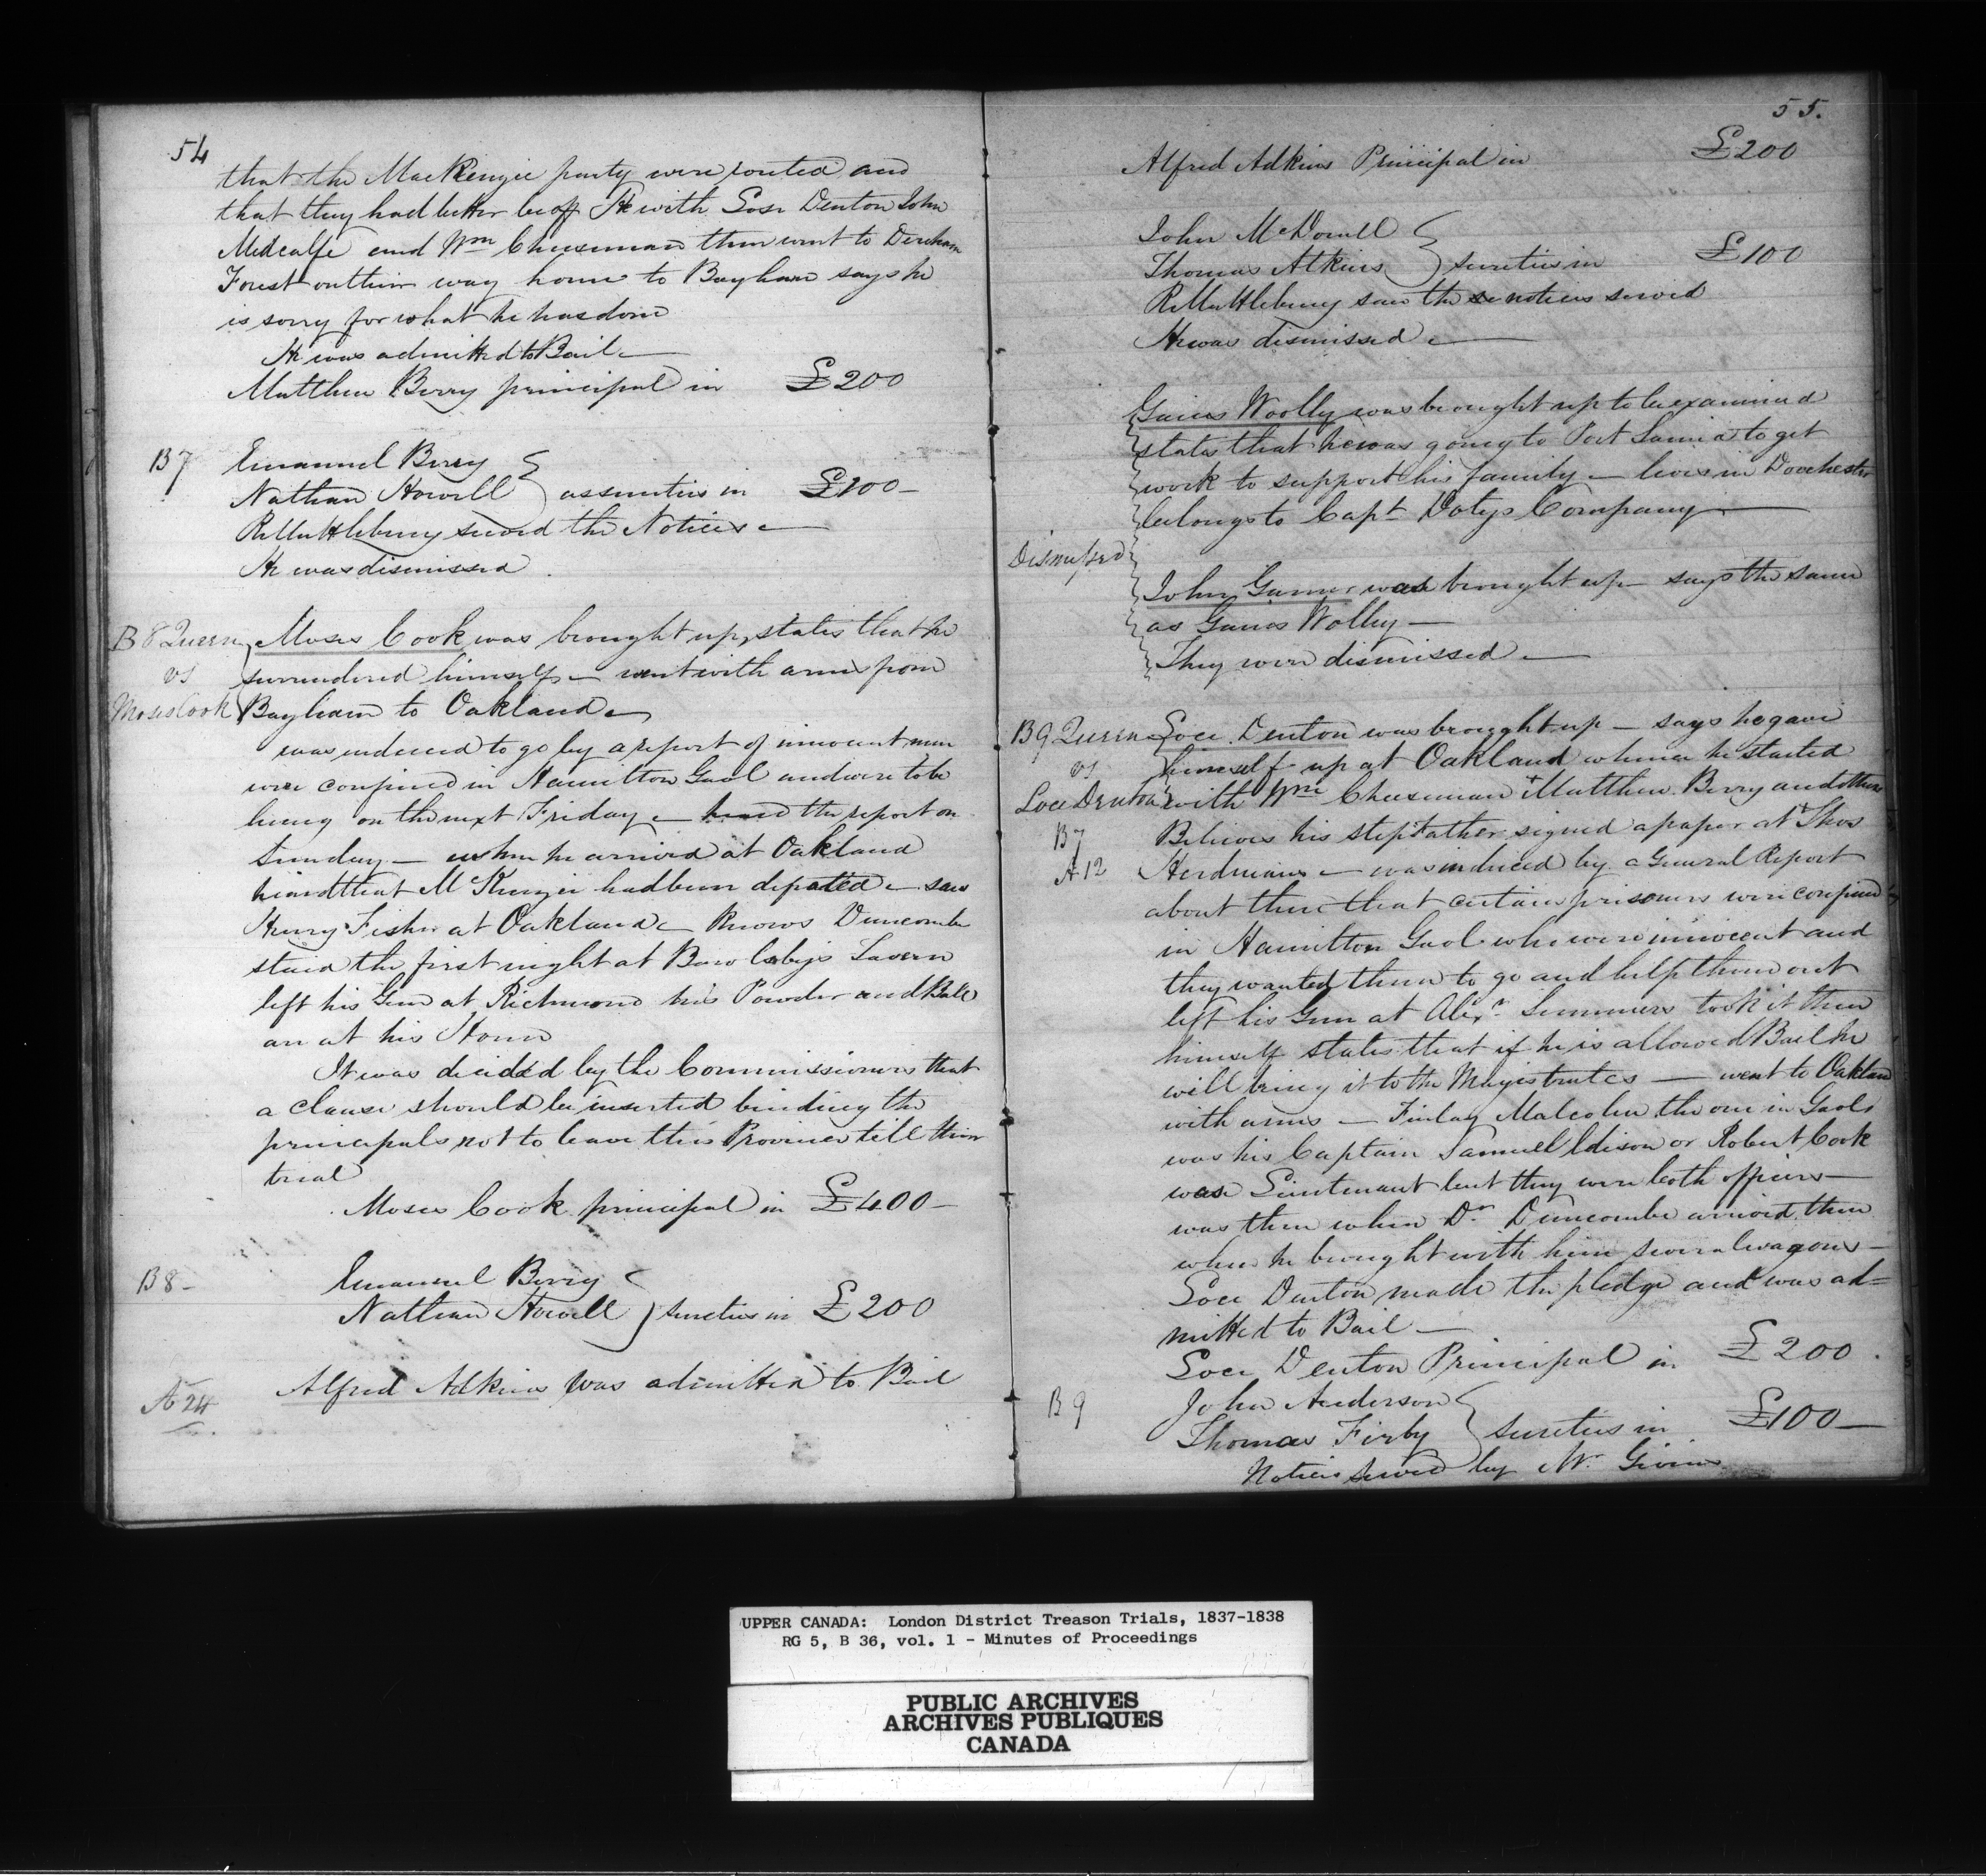 54
that the MacKenzie party were routed and
that they had better be off He with Soce Denton John
Medcalfe and Wm Cheeseman then went to Dereham
Forest on their way home to Bayham says he
is sorry for what he has done
He was admitted to Bail —
Matthew Berry principal in £200
B7
Emanuel Berry
Nathan Howell } as sureties in £100 —
R Muttlebury served the Notices —
He was dismissed.
B 8 Queen
vs
Moses Cook
Moses Cook was brought up, states that he
surrendered himself — went with arms from
Bayham to Oakland —
was induced to go by a report of innocent men
were confined in Hamilton Gaol and were to be
hung on the next Friday — heard the report on
Sunday — when he arrived at Oakland
heard that McKenzie had been defeated — saw
Henry Fisher at Oakland — knows Duncombe
staid the first night at Bowlsby's Tavern
left his Gun at Richmond his Powder and Ball
are at his Home
It was decided by the Commissioners that
a Clause should be inserted binding the
principals not to leave this Province till their
trial
Moses Cook principal in £400 —
B 8 —
Emanuel Berry
Nathan Howell } sureties in £200
A 24
Alfred Adkins was admitted to Bail
55.
Alfred Adkins Principal in £200
John McDowell
Thomas Atkins } sureties in £100
R Muttlebury saw the notices served
He was dismissed —
Dismissed
Gaius Woolly was brought up to be examined
states that he was going to Port Sarnia to get
work to support his family — lives in Dorchester
belongs to Capt Dotys Company —
John Gurner was brought up — says the same
as Gaius Wolley —
They were dismissed —
B 9 Queen
vs
Soce Denton
B 7
A 12
Soce Denton was brought up — says he gave
himself up at Oakland whence he started
with Wm Cheeseman + Matthew Berry and others
Believes his stepfather signed a paper at Thos
Herdmans — was induced by a General Report
about there that certain prisoners were confined
in Hamilton Gaol who were innocent and
they wanted them to go and help them out
left his Gun at Alexr Summers took it there
himself states that if he is allowed Bail he
will bring it to the Magistrates — went to Oakland
with arms — Finlay Malcolm the one in Gaol
was his Captain Samuel Edison or Robert Cook
was Lieutenant but they were both officers —
was there when Dr Duncombe arrived there
when he brought with him several wagons —
Soce Denton made the pledge and was ad=
mitted to Bail —
Soce Denton Principal in £200.
B 9
John Anderson
Thomas Firby } sureties in £100 —
Notices served by Mr Givins
UPPER CANADA: London District Treason Trials, 1837-1838
RG 5, B 36, vol. 1 - Minutes of Proceedings
PUBLIC ARCHIVES
ARCHIVES PUBLIQUES
CANADA